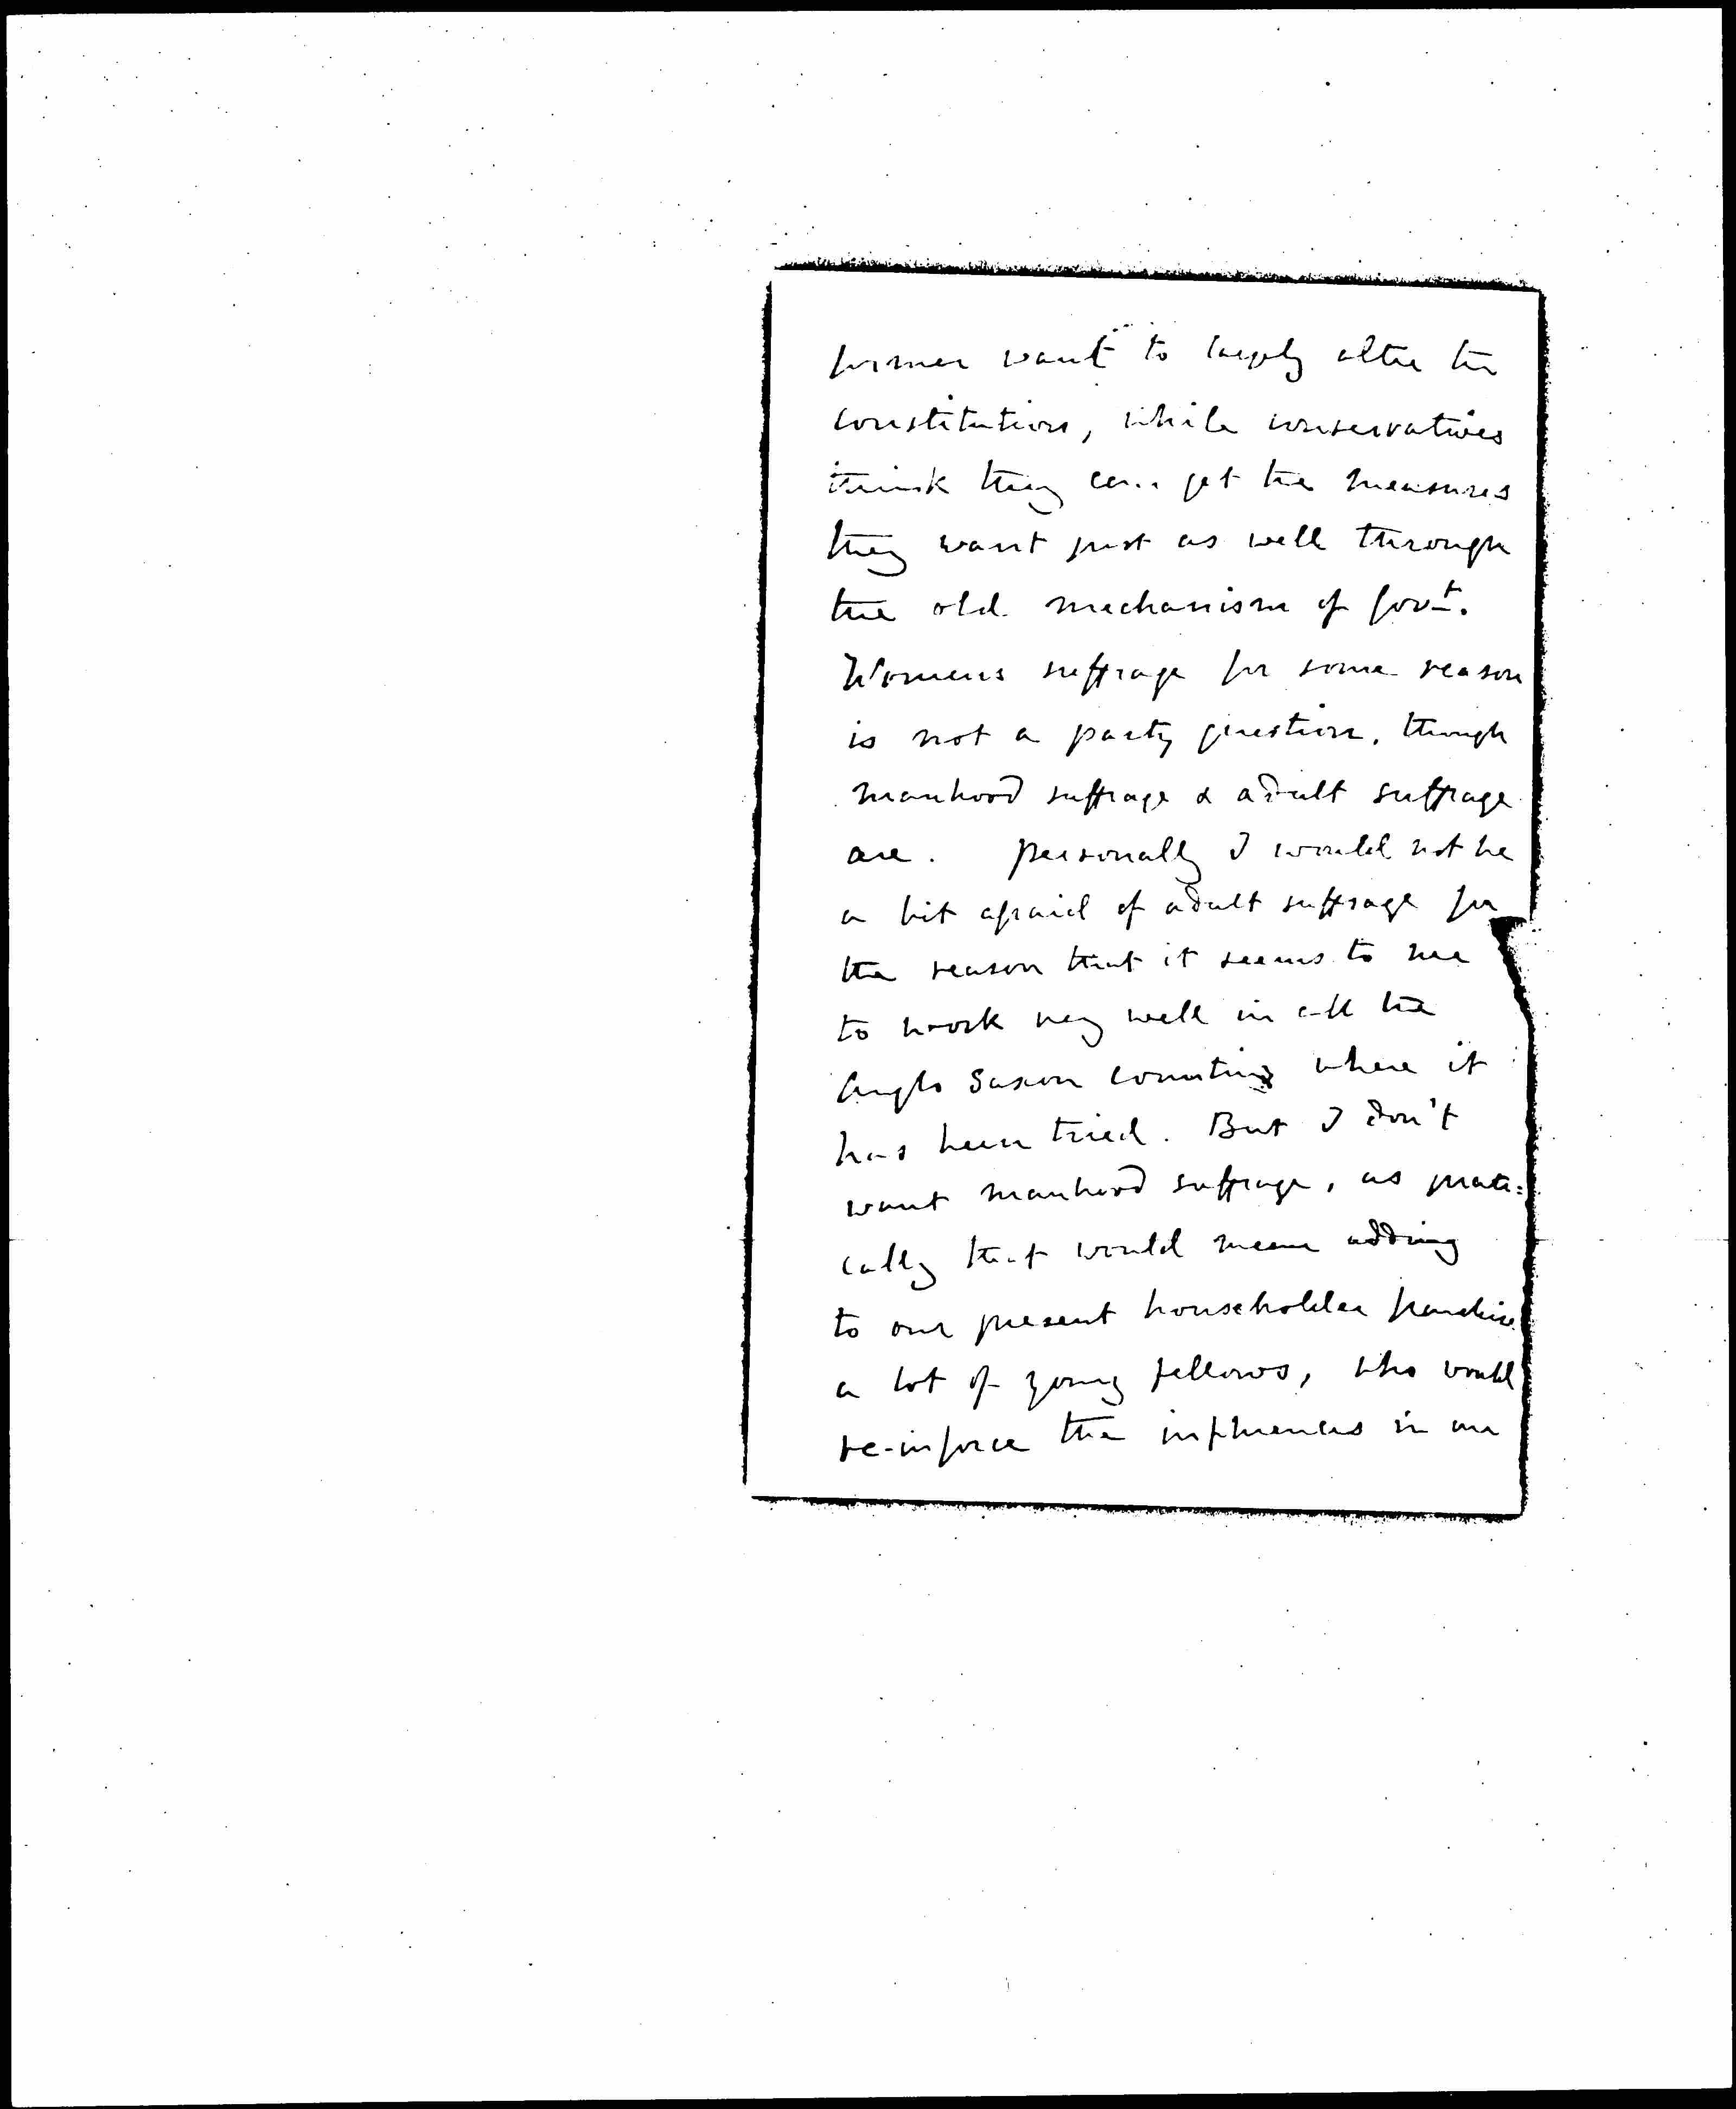 former want to largely alter the
constitution, while conservatives
think they can get the measures
they want just as well through
the old mechanism of Govt.
Womens suffrage for some reason
is not a party question, though
manhood suffrage & adult suffrage
are. Personally I would not be
a bit afraid of adult suffrage for
the reason that it seems to me
to work very well in all the
Anglo Saxon countries where it
has been tried. But I don't
want manhood suffrage, as practi=
cally that would mean adding
to our present householder franchise
a lot of young fellows, who would
re-inforce the influences in our